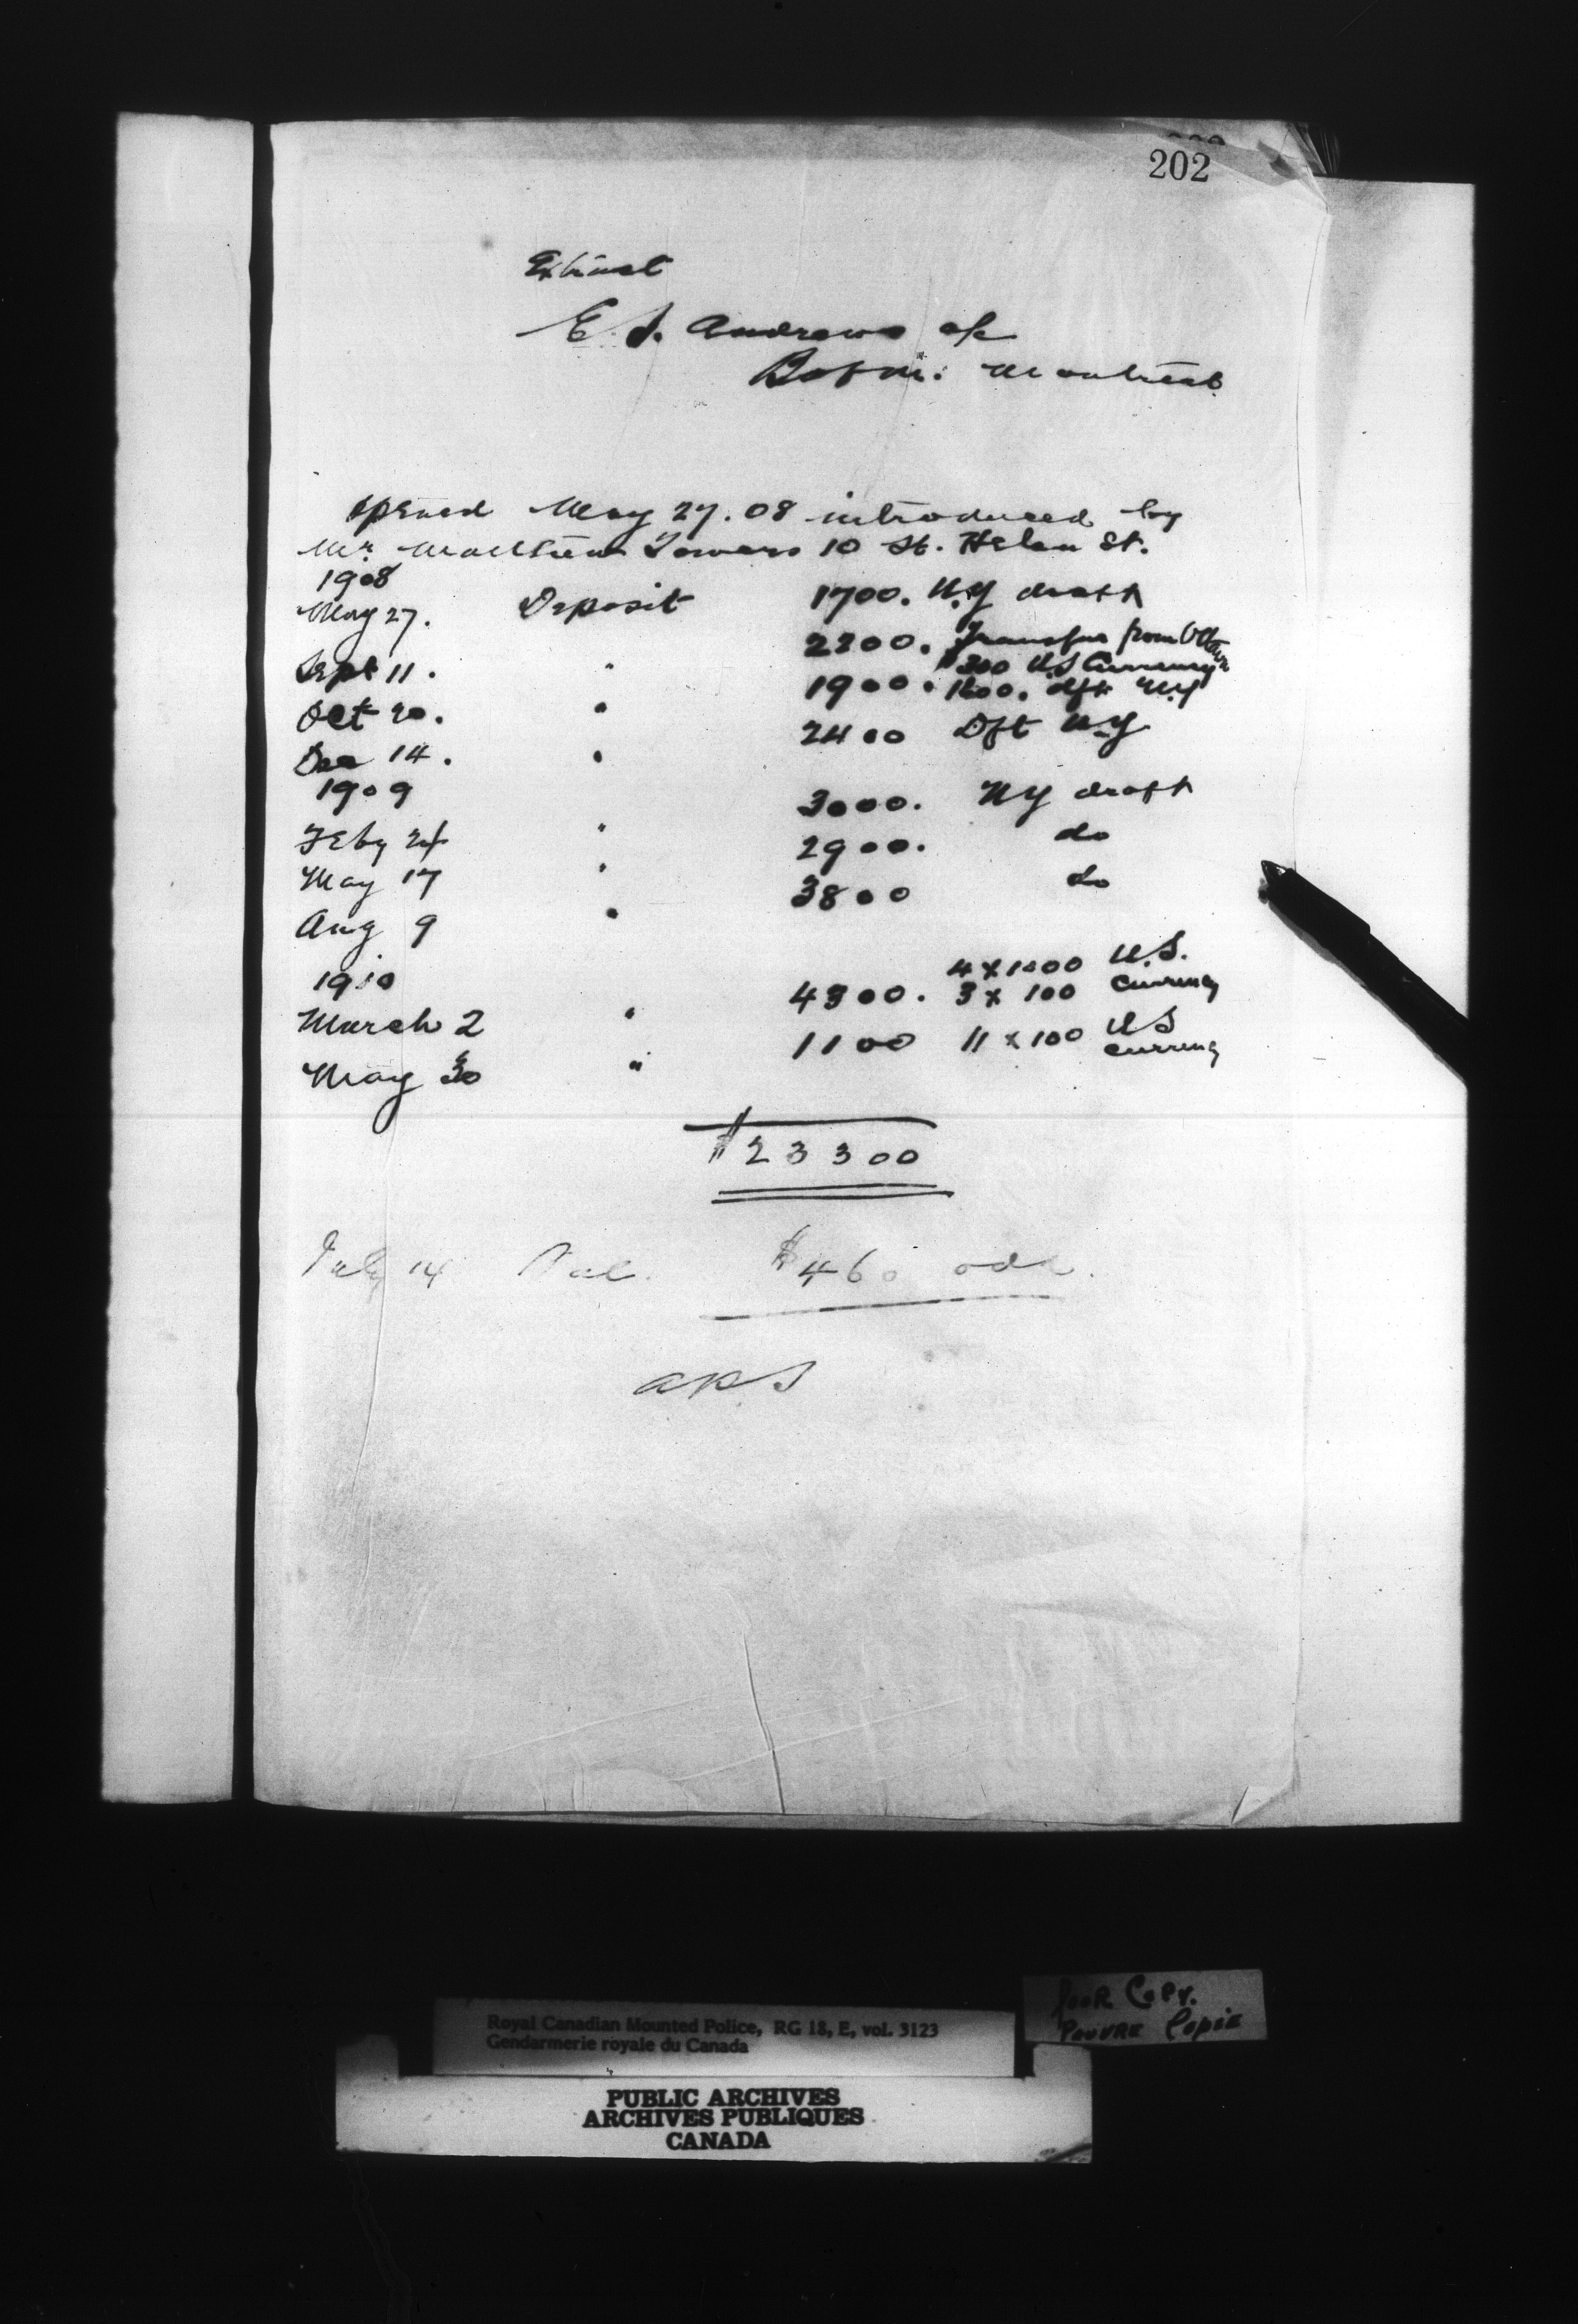 202
Extract
E. S. Andrews a/c
B of M. Montreal
opened May 27. 08 introduced by
Mr. Matthew Towers 10 St. Helen St.
1908
May 27. Deposit 1700. N.Y draft
Sept 11. " 2200. Transfer from Ottawa
Oct 20. " 1900. $300 U.S Currency 1600. dft N.Y
Dec 14. " 2400 Dft N.Y
1909
Feby 24 " 3000. NY draft
May 17 " 2900. do
Aug 9 " 3800 do
1910
March 2 " 4300. 4 x 1000 3 x 100 U.S. currency
May 30 " 1100 11 x 100 US currency
$23300
July 14 Bal. $460 odd.
APS
Royal Canadian Mounted Police, RG 18, E, vol. 3123
Gendarmerie royale du Canada
Poor Copy.
Pauvre Copie
PUBLIC ARCHIVES
ARCHIVES PUBLIQUES
CANADA